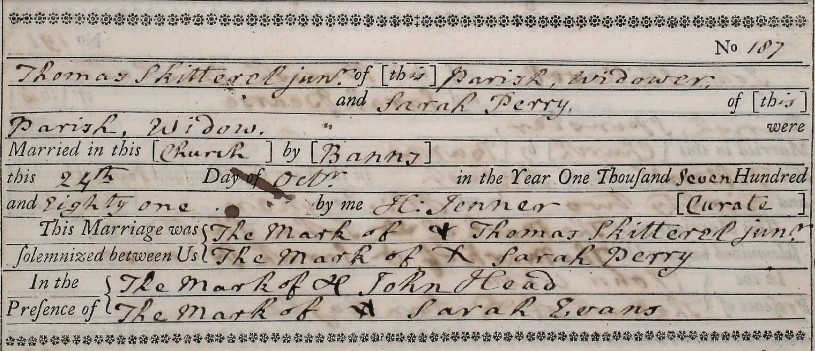 No 187
Thomas Skitterel junr. of [this] Parish, Widower,
and Sarah Perry, of [this]
Parish, Widow. were
Married in this [Church ] by [Banns]
this 24th Day of Octr. in the Year One Thousand Seven Hundred
and Eighty one . by me H: Jenner [Curate ]
This Marriage was The Mark of X Thomas Skitterel junr.
solemnized between Us The Mark of X Sarah Perry
In the The Mark of X John Head
Presence of The Mark of X Sarah Evans